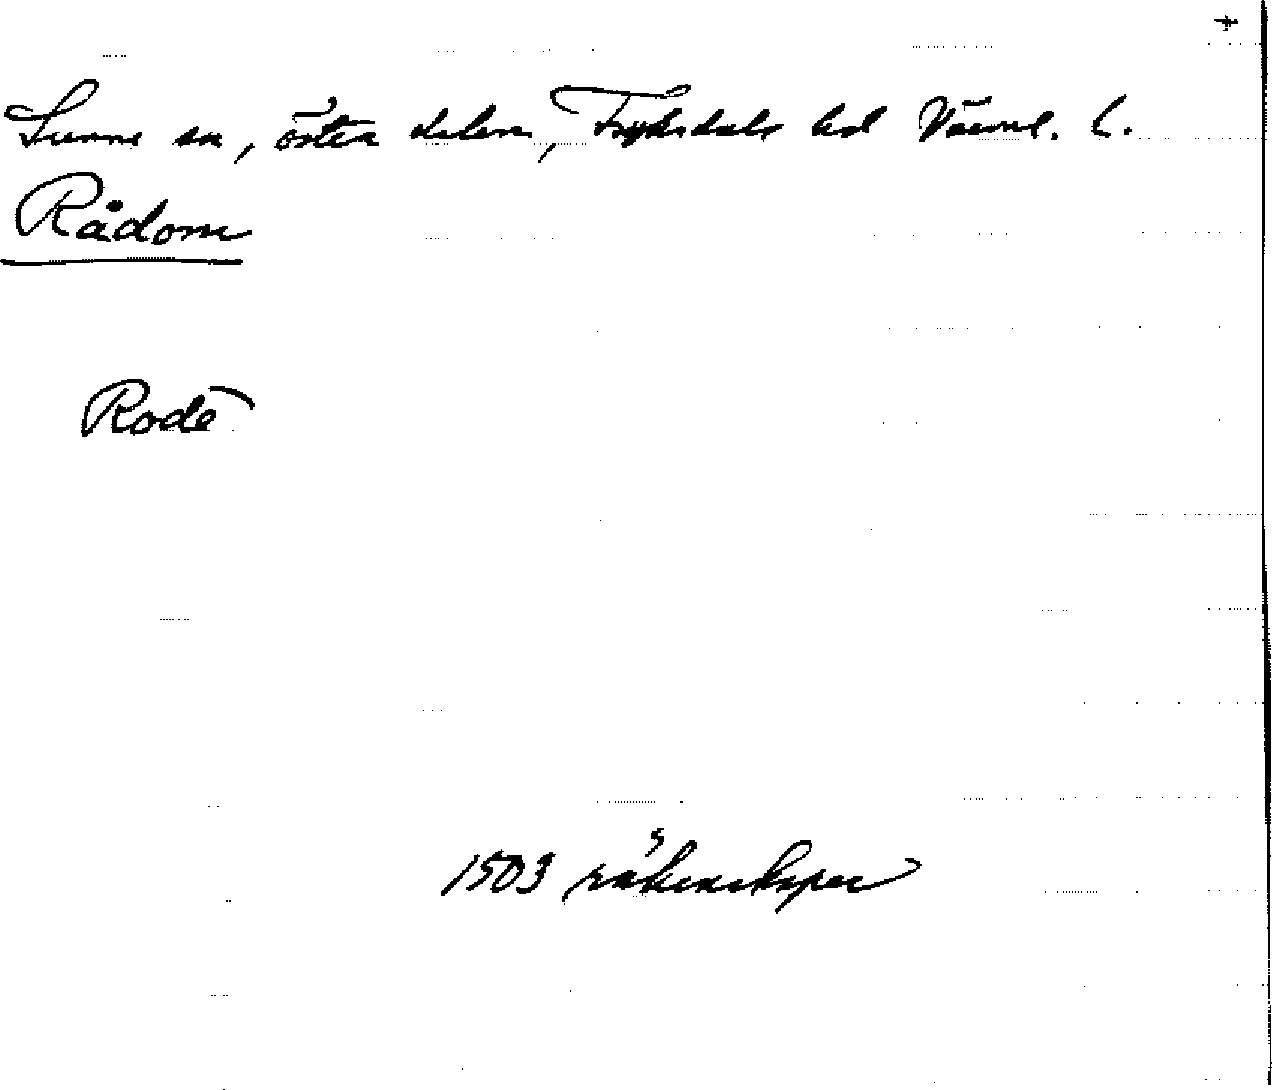 Sunne sn, östra delen, Fryksdals hd Värml. l.
Rådom
Rodē
1503 räkenskaper